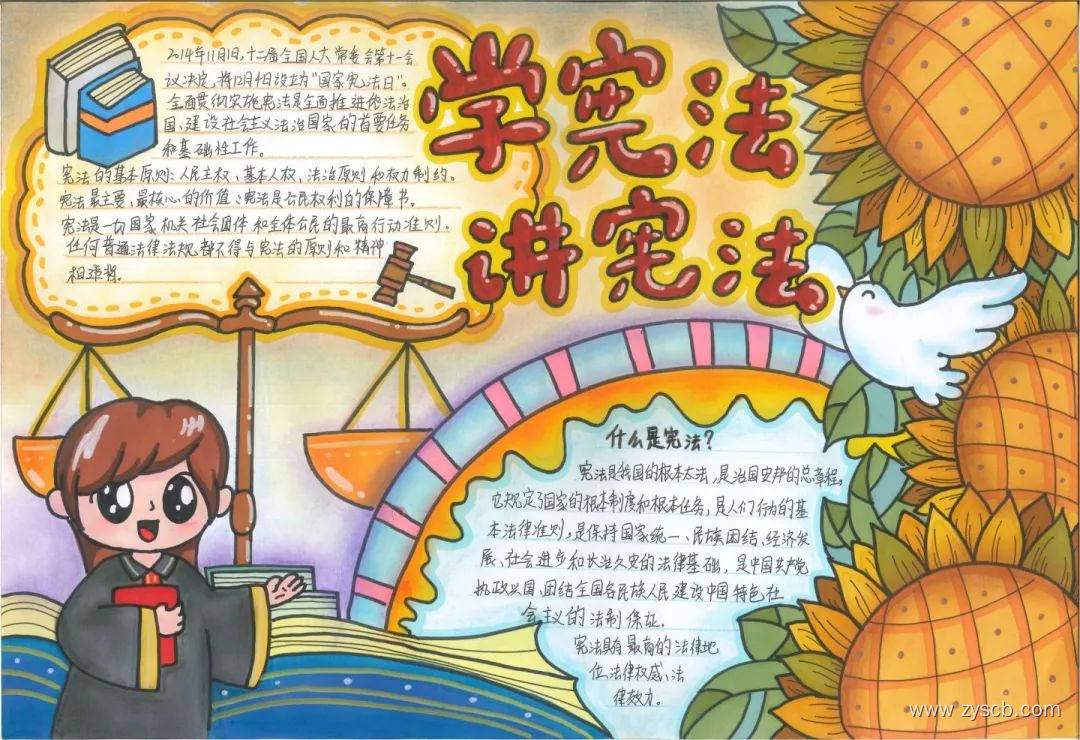 学宪法
讲宪法
2014年11月1日,十二届全国人大常委会第十一会
议决定,将12月4日设立为“国家宪法日”。
全面贯彻实施宪法是全面推进依法治
国、建设社会主义法治国家的首要任务
和基础性工作。
宪法的基本原则:人民主权、基本人权、法治原则和权力制约。
宪法最主要、最核心的价值:宪法是公民权利的保障书。
宪法是一切国家机关社会团体和全体公民的最高行动准则.
任何普通法律法规都不得与宪法的原则和精神
相违背.
什么是宪法?
宪法是我国的根本大法,是治国安邦的总章程,
它规定了国家的根本制度和根本任务,是人们行为的基
本法律准则,是保持国家统一、民族团结、经济发
展、社会进步和长治久安的法律基础,是中国共产党
执政兴国、团结全国各民族人民建设中国特色社
会主义的法制保证.
宪法具有最高的法律地
位、法律权威、法
律效力.
www.zyscb.com